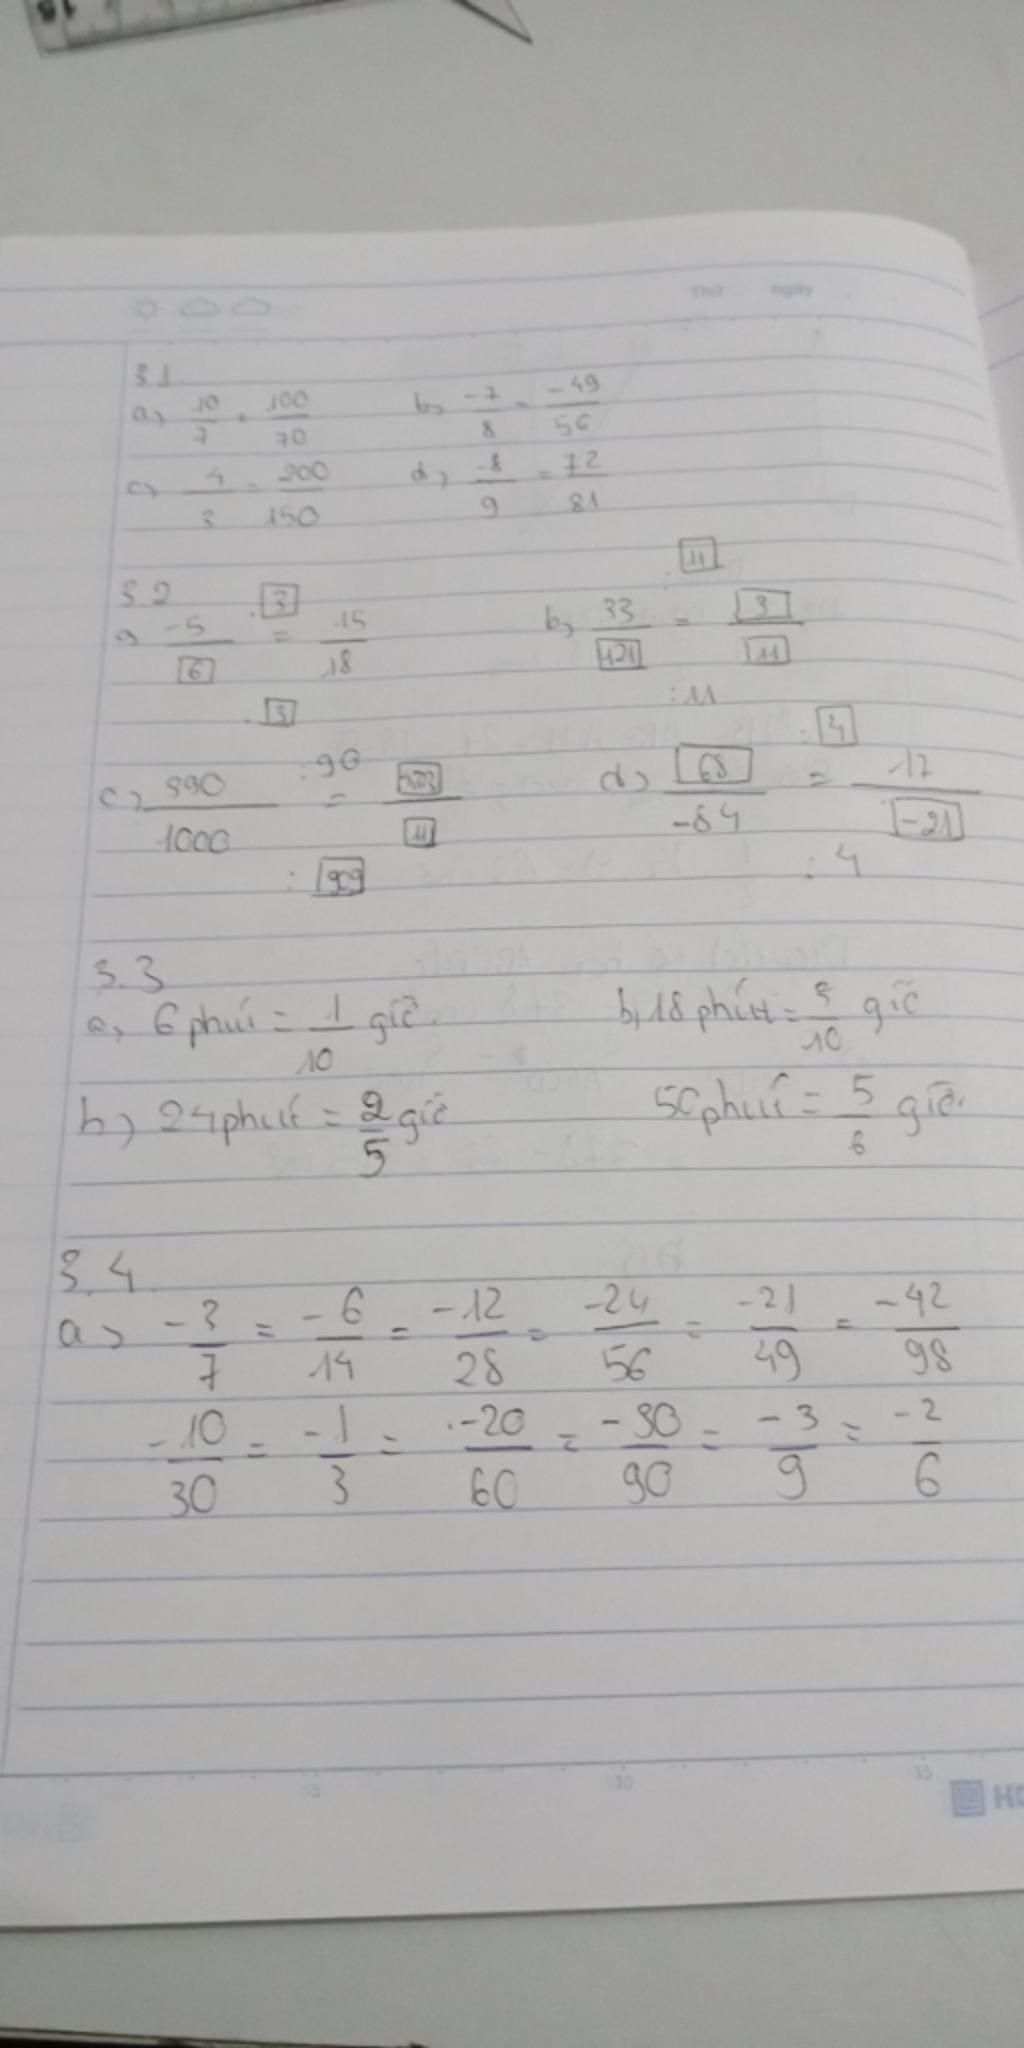 Thứ ngày
3.1
a, 10/7 = 100/70 b, -7/8 = -49/56
c, 4/3 = 200/150 d, -8/9 = 72/81
3.2
a, -5/6 = 15/18 .3 .3 b, 33/121 = 3/11 :11 :11
c, 990/1000 = /11 :90 : d, 68/-84 = 17/-21 :4 :4
3.3
a, 6 phút = 1/10 giờ. b, 18 phút = 3/10 giờ
b, 24 phút = 2/5 giờ 50 phút = 5/6 giờ.
3.4
a, -3/7 = -6/14 = -12/28 = -24/56 = -21/49 = -42/98
-10/30 = -1/3 = -20/60 = -30/90 = -3/9 = -2/6